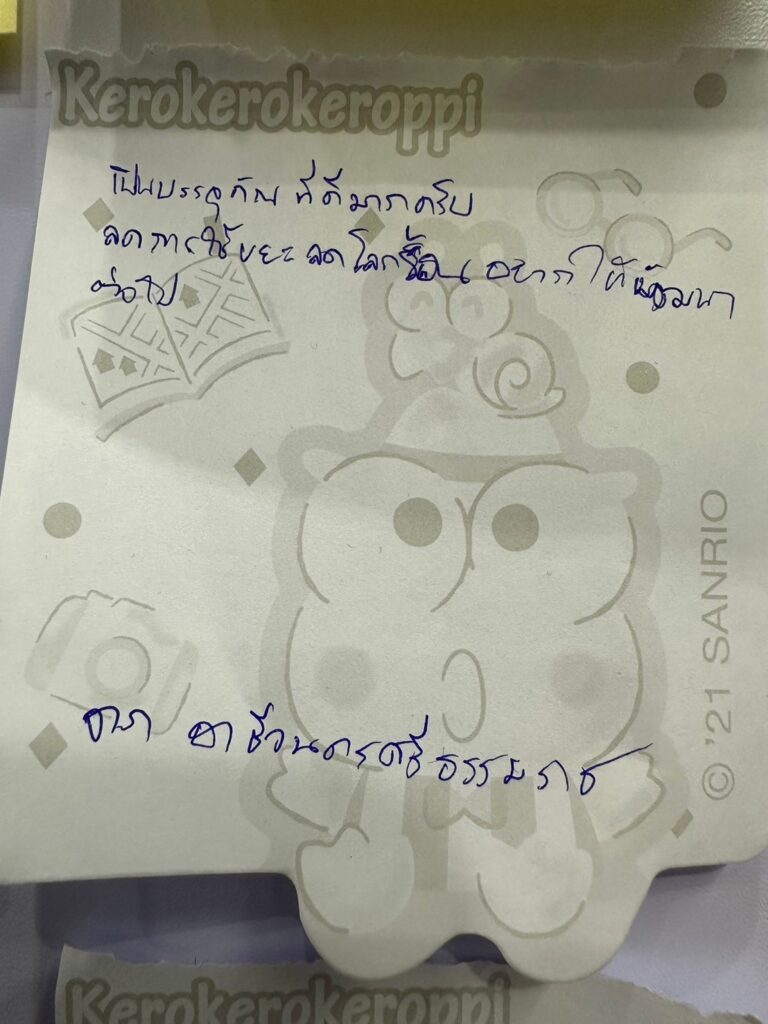 Kerokerokeroppi
เป็นบรรจุภัณ ที่ดีมากครับ
ลดการใช้ขยะ ลดโลกร้อน อยากให้พัฒนา
ต่อไป
© '21 SANRIO
อาชีวนครศรีธรรมราช
Kerokerokeroppi